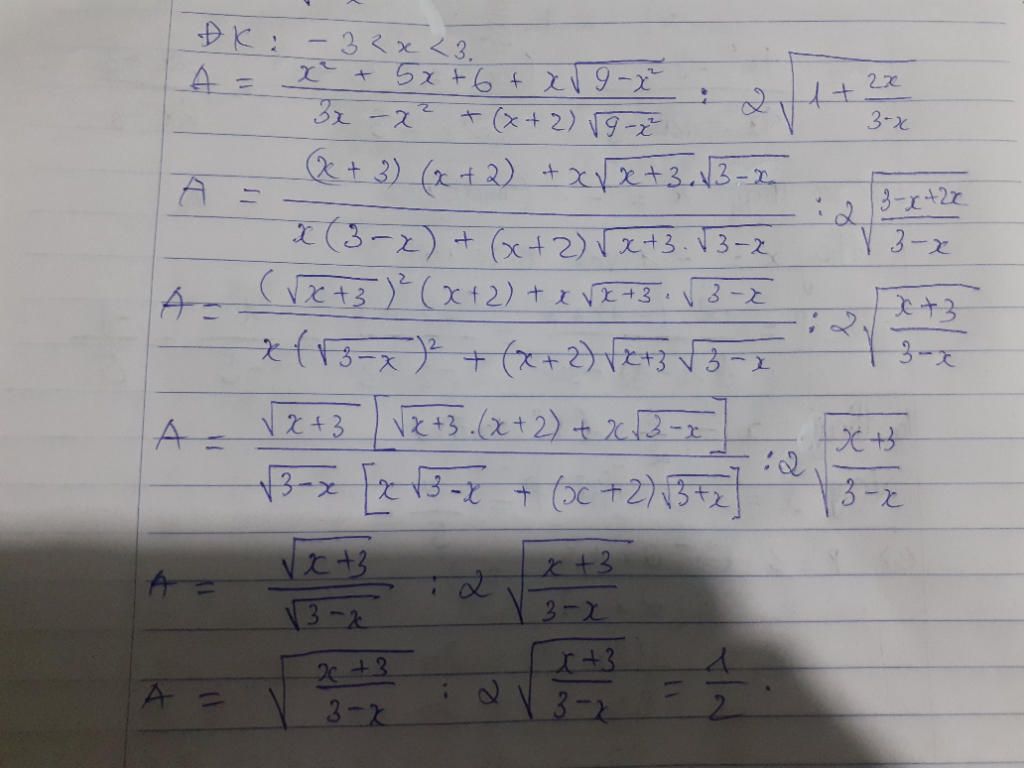 ĐK: -3 < x < 3.
A = \frac{x² + 5x + 6 + x\sqrt{9-x²}}{3x - x² + (x+2)\sqrt{9-x²}} : 2\sqrt{1 + \frac{2x}{3-x}}
A = \frac{(x+3)(x+2) + x\sqrt{x+3}.\sqrt{3-x}}{x(3-x) + (x+2)\sqrt{x+3}.\sqrt{3-x}} : 2\sqrt{\frac{3-x+2x}{3-x}}
A = \frac{(\sqrt{x+3})²(x+2) + x\sqrt{x+3}.\sqrt{3-x}}{x(\sqrt{3-x})² + (x+2)\sqrt{x+3}\sqrt{3-x}} : 2\sqrt{\frac{x+3}{3-x}}
A = \frac{\sqrt{x+3}[\sqrt{x+3}.(x+2) + x\sqrt{3-x}]}{\sqrt{3-x}[x\sqrt{3-x} + (x+2)\sqrt{3+x}]} : 2\sqrt{\frac{x+3}{3-x}}
A = \frac{\sqrt{x+3}}{\sqrt{3-x}} : 2\sqrt{\frac{x+3}{3-x}}
A = \sqrt{\frac{x+3}{3-x}} : 2\sqrt{\frac{x+3}{3-x}} = \frac{1}{2}.